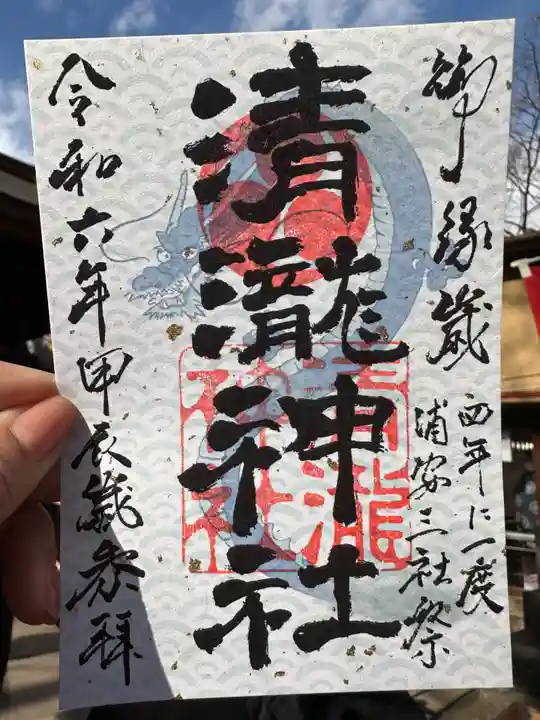 御縁歳
四年に一度
浦安三社祭
清瀧神社
清瀧
神社
令和六年甲辰歳参拜